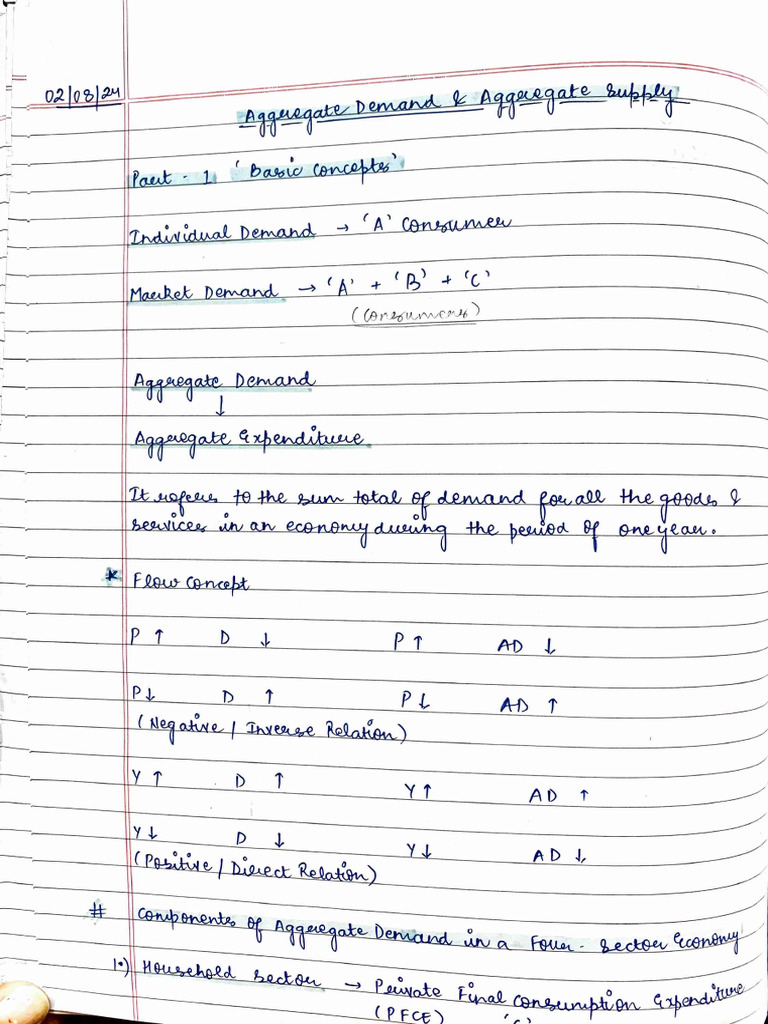 02/08/24
Aggregate Demand & Aggregate Supply
Part - 1 'Basic Concepts'
Individual Demand → 'A' Consumer
Market Demand → 'A' + 'B' + 'C'
(Consumers)
Aggregate Demand
↓
Aggregate Expenditure
It refers to the sum total of demand for all the goods &
services in an economy during the period of one year.
* Flow Concept
P ↑ D ↓ P ↑ AD ↓
P ↓ D ↑ P ↓ AD ↑
(Negative / Inverse Relation)
Y ↑ D ↑ Y ↑ AD ↑
Y ↓ D ↓ Y ↓ AD ↓
(Positive / Direct Relation)
# Components of Aggregate Demand in a Four - Sector Economy
1.) Household Sector → Private Final Consumption Expenditure
(PFCE) 'C'